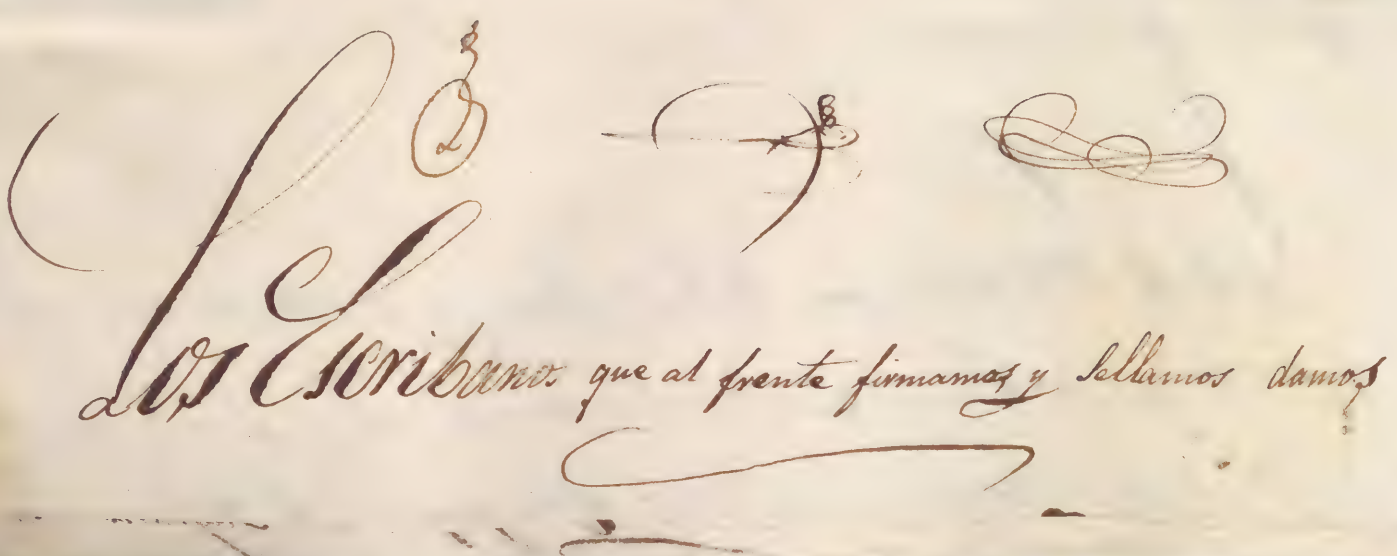 Los Escribanos que al frente firmamos y Sellamos damos